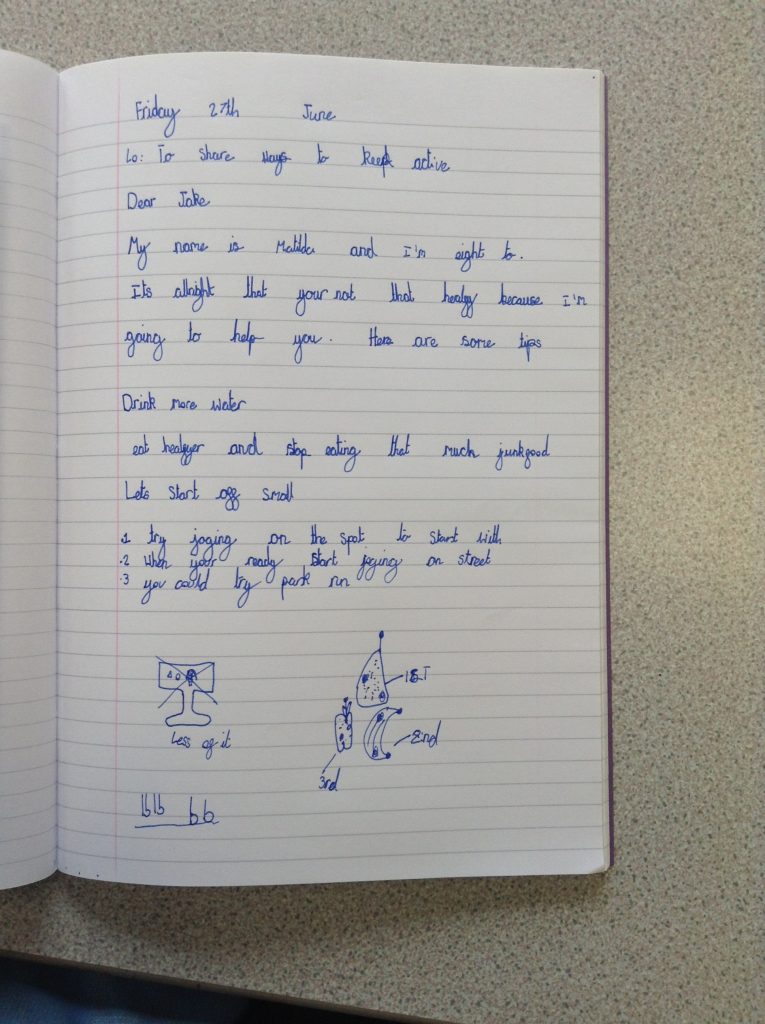 Friday 27th June
Lo: To share ways to keep active
Dear Jake
My name is Matilda and I'm eight to.
Its allright that your not that healfy because I'm
going to help you. Here are some tips
Drink more water
eat healfyer and stop eating that much junkfood
Lets start off small
.1 try joging on the spot to start with
.2 when your ready start joging on street
.3 you could try park run
Less of it
1ST
2nd
3rd
bb bb